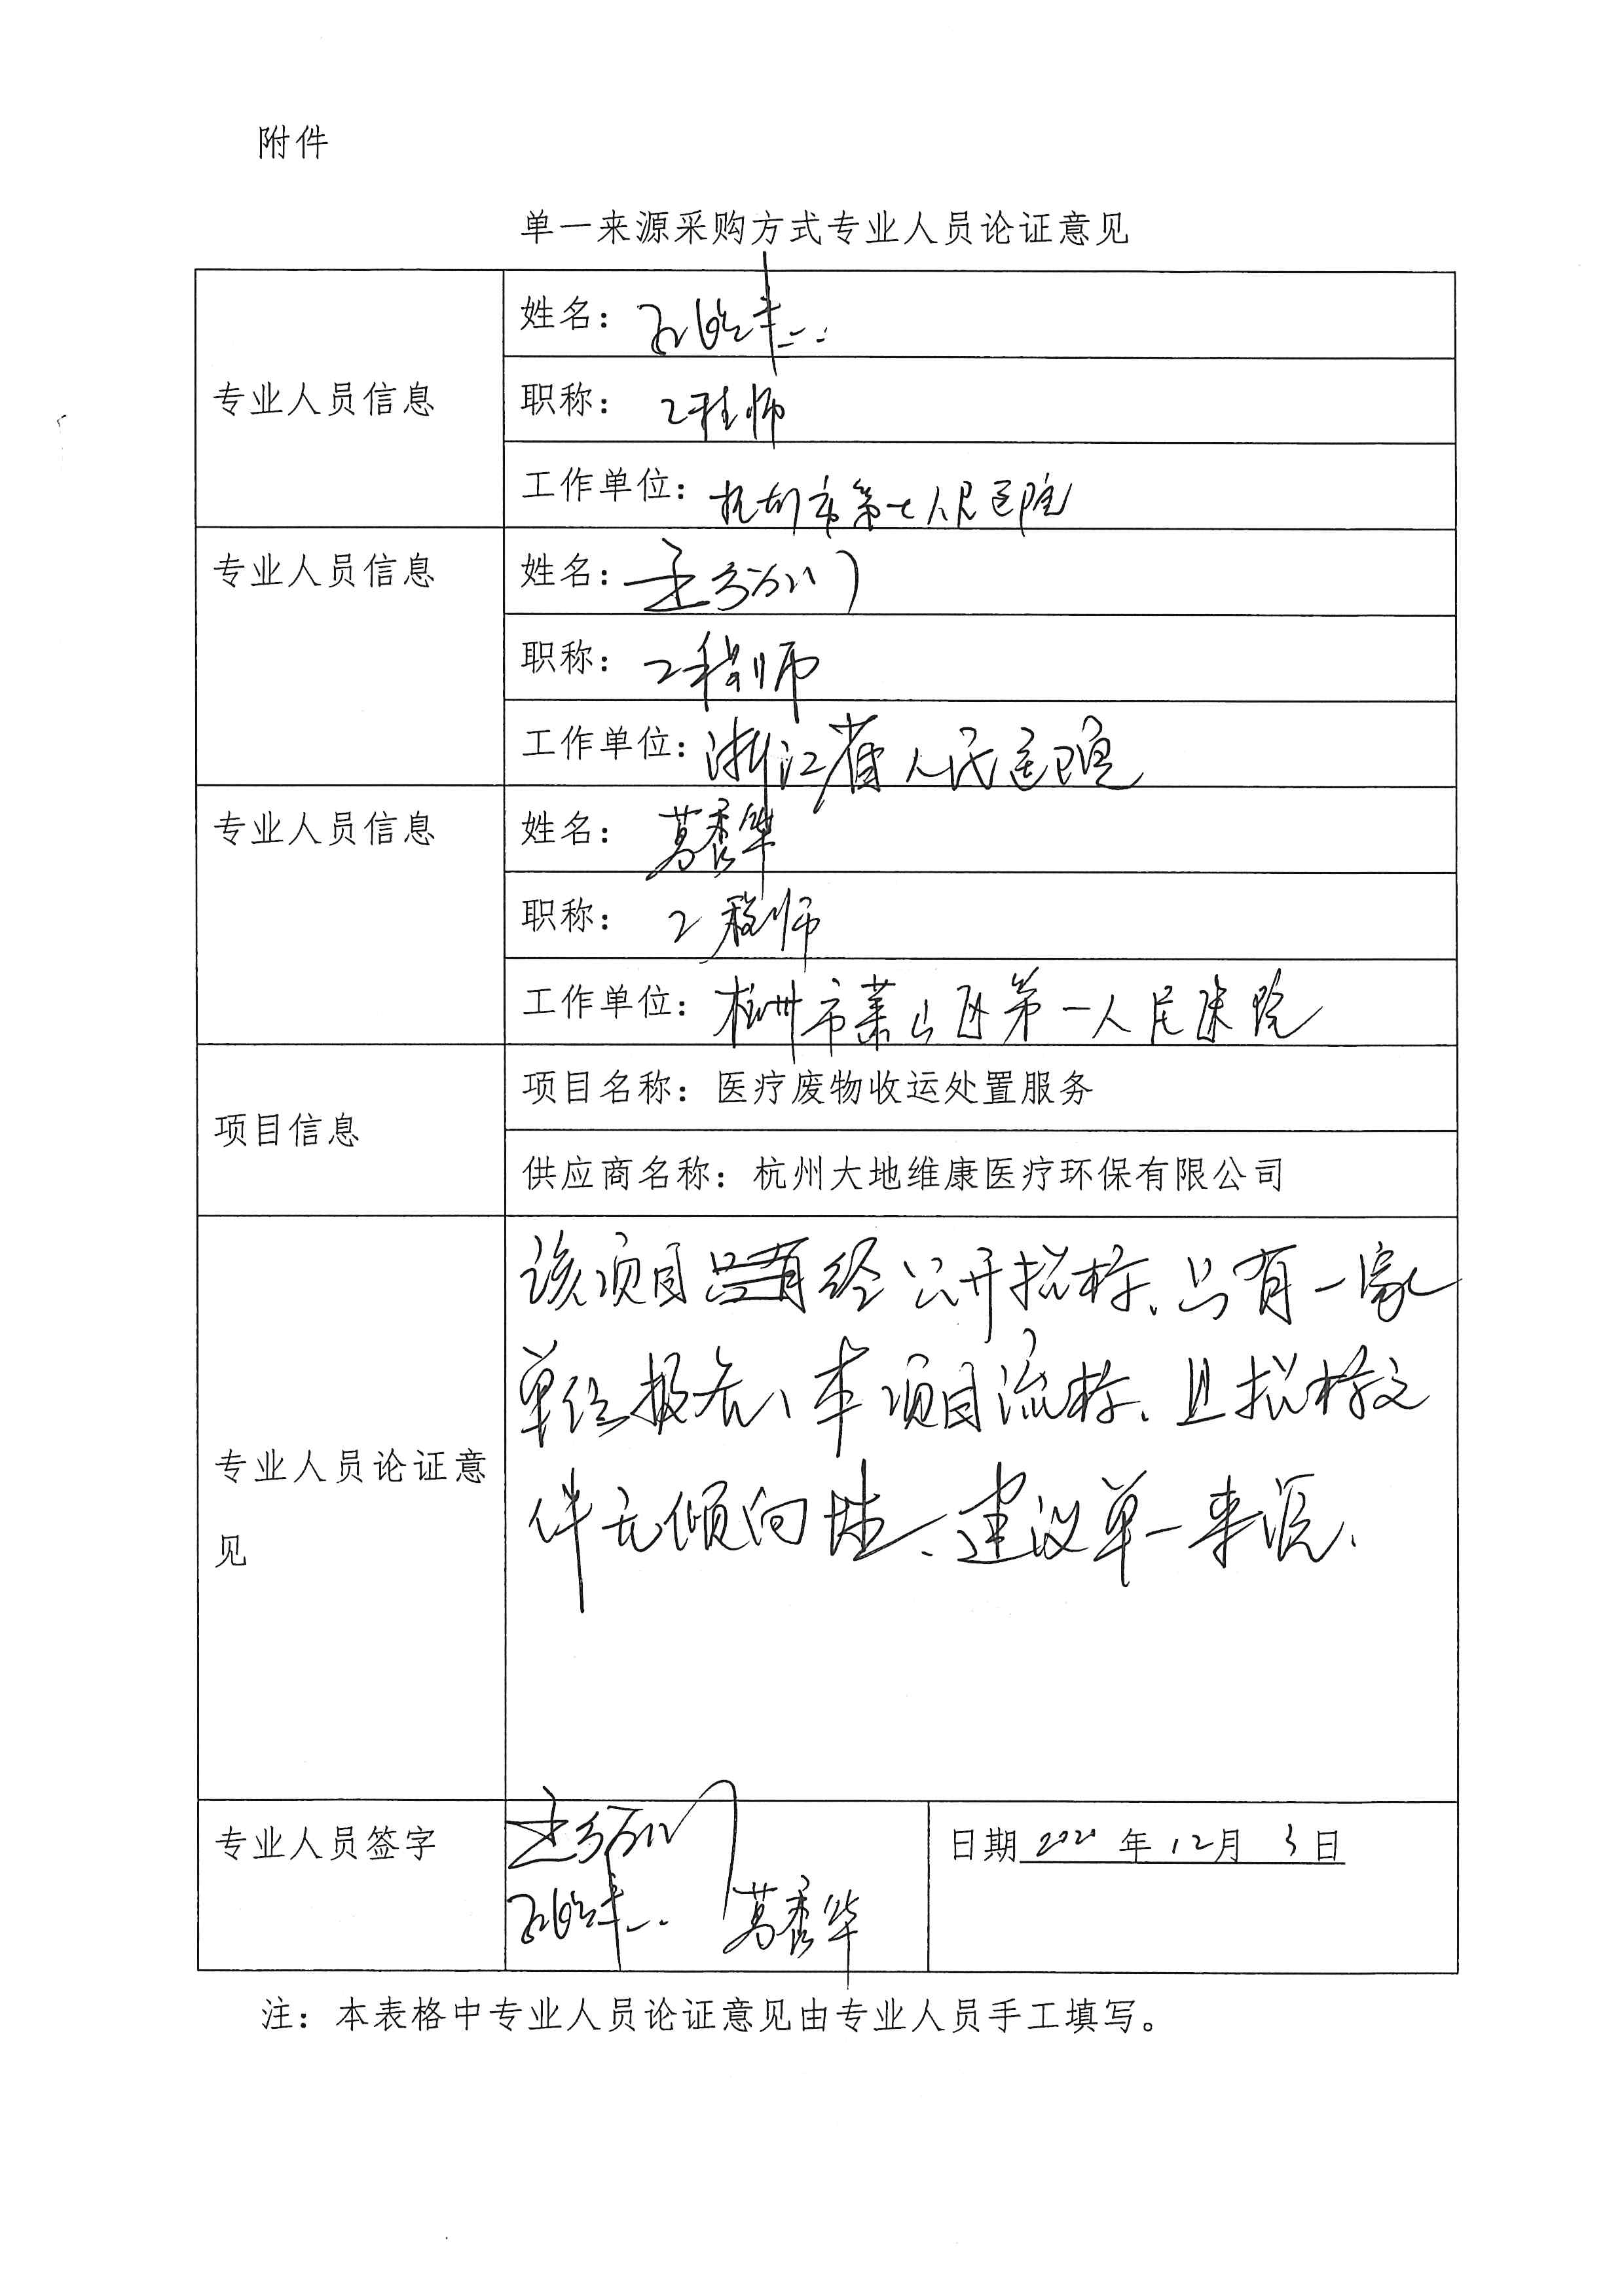 附件
单一来源采购方式专业人员论证意见
专业人员信息
姓名：
职称： 工程师
工作单位：杭州市第七人民医院
专业人员信息
姓名：
职称： 工程师
工作单位：浙江省人民医院
专业人员信息
姓名： 葛秀华
职称： 工程师
工作单位：杭州市萧山区第一人民医院
项目信息
项目名称：医疗废物收运处置服务
供应商名称：杭州大地维康医疗环保有限公司
专业人员论证意
见
该项目只有经公开招标、只有一家
单位报名、本项目流标、且招标文
件无倾向性、建议单一来源.
专业人员签字
葛秀华
日期 2020 年 12月 3日
注：本表格中专业人员论证意见由专业人员手工填写。